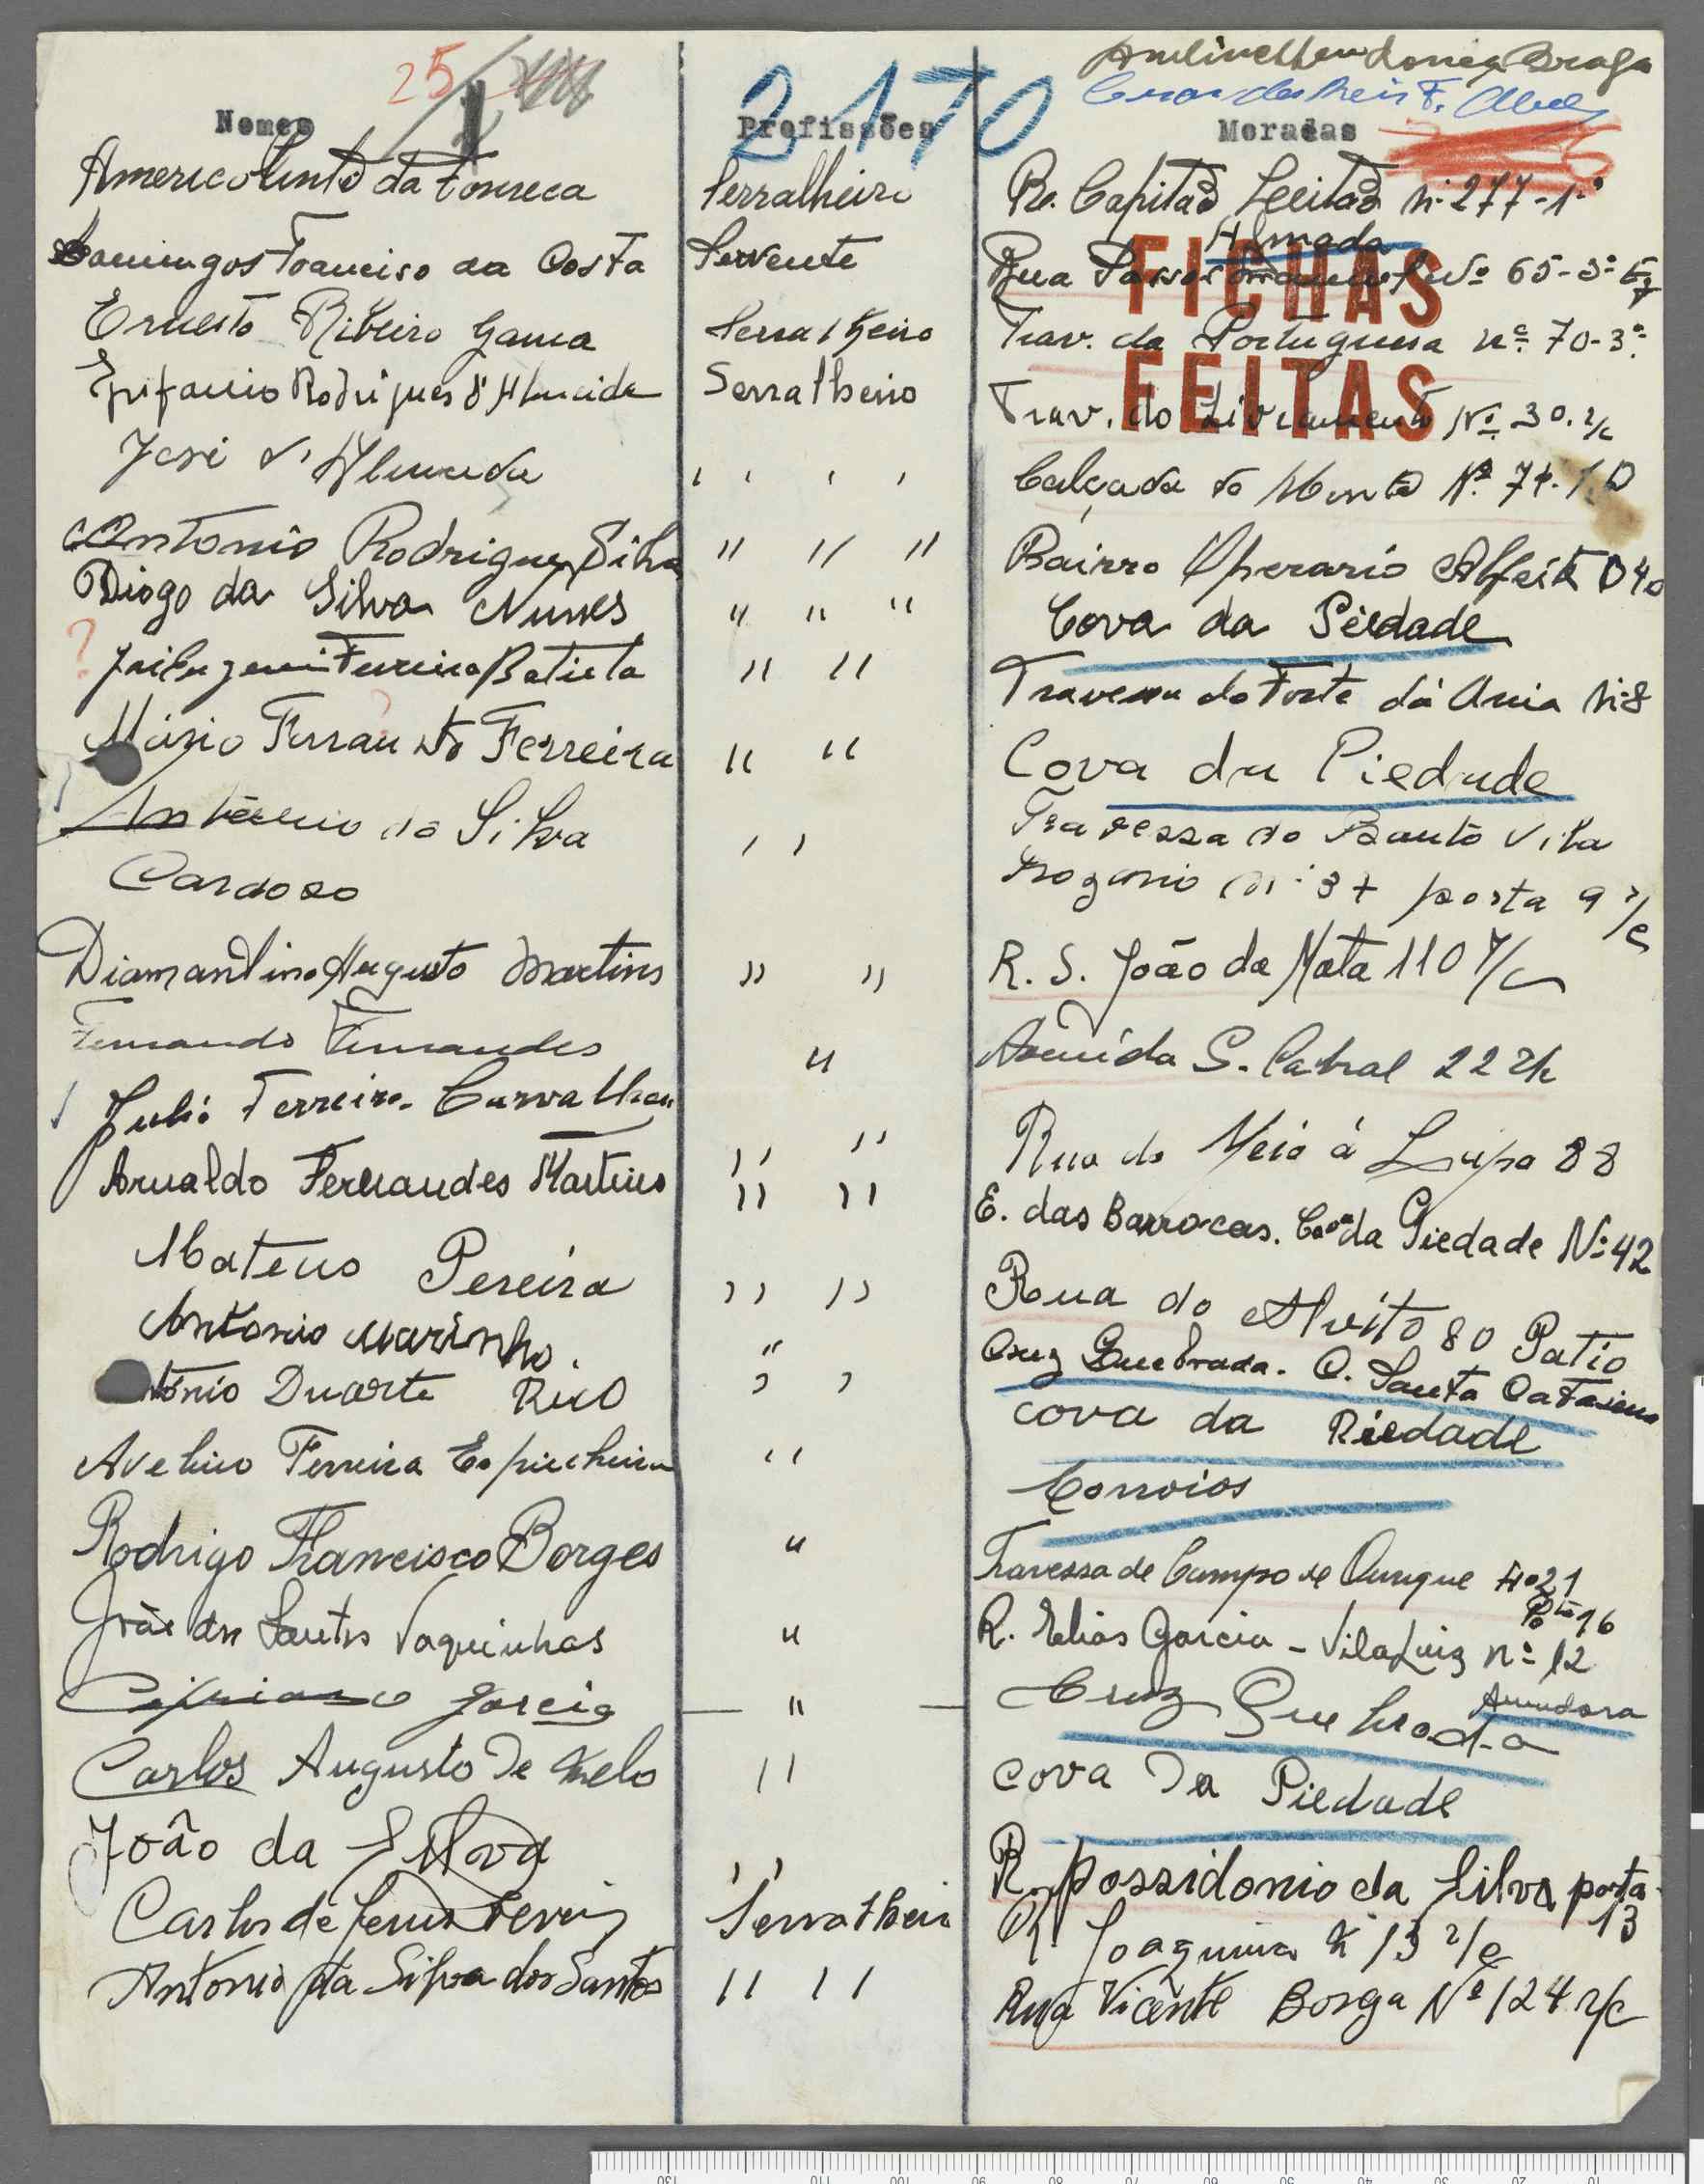 25
2170
Braga
Nomes Profissões Moradas
FICHAS
FEITAS
Americo Pinto da Fonseca Serralheiro R. Capitão Leitão Nº 277-1º
Almada
Domingos Francisco da Costa Servente Rua Passos Manuel Nº 65-3º
Ernesto Ribeiro Gama Serralheiro Trav. da Portuguesa nº 70-3º
Epifanio Rodrigues d'Almeida Serralheiro Trav. do Livramento Nº 30. r/c
José d'Almeida " " " " Calçada do Monte Nº 74.
Antonio Rodrigues Silva " " " Bairro Operario Alfeite D 40
Diogo da Silva Nunes " " " Cova da Piedade
? Ferreira Batista " " Travessa do Forte da Nº 8
Mário Ferrando Ferreira " " Cova da Piedade
António da Silva " Travessa do Bauto Vila
Cardoso nº 37 porta 9 r/c
Diamantino Augusto Martins " " R. S. João da Mata 110 r/c
Fernando Fernandes " Avenida S. Cabral 22 r/c
Julio Ferreira Carvalhau " " Rua do Meio á Lapa 88
Arnaldo Fernandes Martins " " E. das Barrocas. Cova da Piedade Nº 42
Mateus Pereira " " Rua do Alvito 80 Patio
Antonio Marinho. " Cruz Quebrada. Q. Santa Catarina
António Duarte Rico " " Cova da Piedade
Avelino Ferreira Espincheira " Corroios
Rodrigo Francisco Borges " Travessa de Campo de Ourique Nº 21
Pta 16
João dos Santos Vaquinhas " R. Elias Garcia - Vila Luiz nº 12
Amadora
Cipriano Garcia — " — Cruz Quebrada
Carlos Augusto de Melo " Cova da Piedade
João da Silva " R. Possidonio da Silva porta
13
Carlos de Jesus Serralheiro R. Joaquina Nº 13 r/c
Antonio da Silva dos Santos " " Rua Vicente Borga Nº 124 r/c
130 110 100 90 80 70 60 50 40 30 20 10